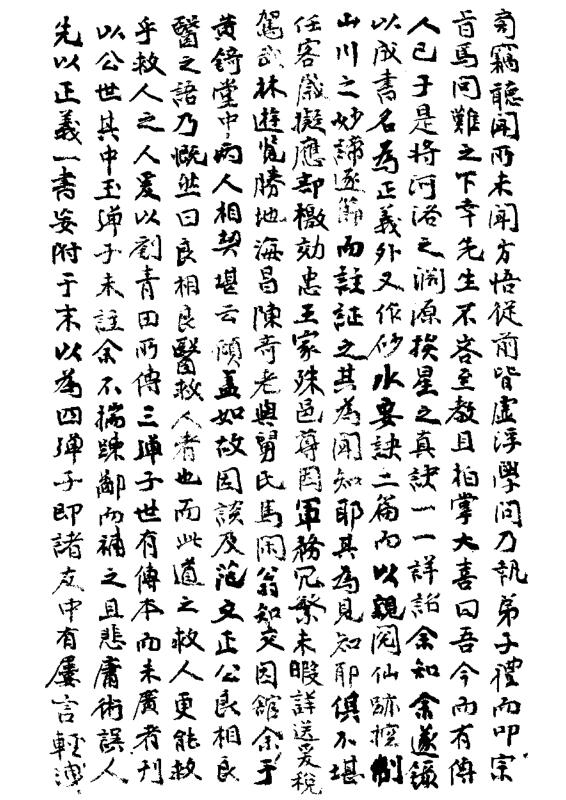 竊聽聞所未聞方悟從前皆虛浮學問乃執弟子禮而叩宗
旨焉問難之下幸先生不吝至教且拍掌大喜曰吾今而有傳
人已于是將河洛之淵源挨星之真訣一一詳誥余知余遂鐫
以成書名為正義外又作砂水要訣二篇而以親閱仙跡挖制
山川之妙諦逐篇而註証之其為聞知耶其為見知耶俱不堪
任客歲擬應部檄効忠王家殊邑尊因軍務冗繁未暇詳送爰稅
駕武林遊覽勝地海昌陳奇老與舅氏馬閑翁知交因館余于
黃錡堂中兩人相契堪云傾蓋如故因談及范文正公良相良
醫之語乃慨然曰良相良醫救人者也而此道之救人更能救
乎救人之人爰以劉青田所傳三彈子世有傳本而未廣者刊
以公世其中玉彈子未註余不揣踈鄙而補之且悲庸術誤人
先以正義一書妄附于末以為四彈子即諸友中有屢言輕洩